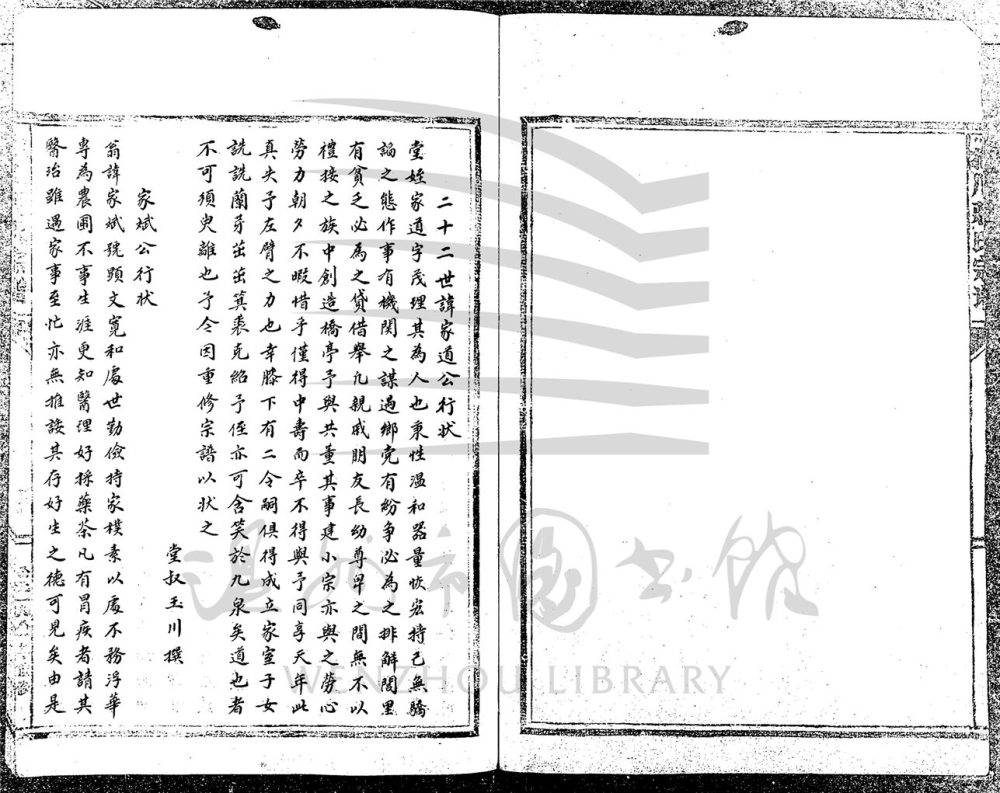 二十二世諱家道公行状
堂姪家道字茂理其為人也秉性溫和器量恢宏持己無驕
謟之態作事有機関之謀遇鄉党有紛争必為之排解閭里
有貧乏必為之貸借舉凡親戚朋友長幼尊卑之間無不以
禮接之族中創造橋亭予與共董其事建小宗亦與之勞心
劳力朝夕不暇惜乎僅得中壽而卒不得與予同享天年此
真失予左臂之力也幸膝下有二令嗣俱得成立家室子女
詵詵蘭芽茁茁箕裘克紹予侄亦可含笑於九泉矣道也者
不可須臾離也予今因重修宗譜以状之
堂叔玉川撰
家斌公行状
翁諱家斌號顕文寬和處世勤儉持家樸素以處不務浮華
專為農圃不事生涯更知醫理好採藥茶凡有冒疾者請其
醫治雖遇家事至忙亦無推諉其存好生之德可見矣由是
温州市圖書館
WENZHOU LIBRARY